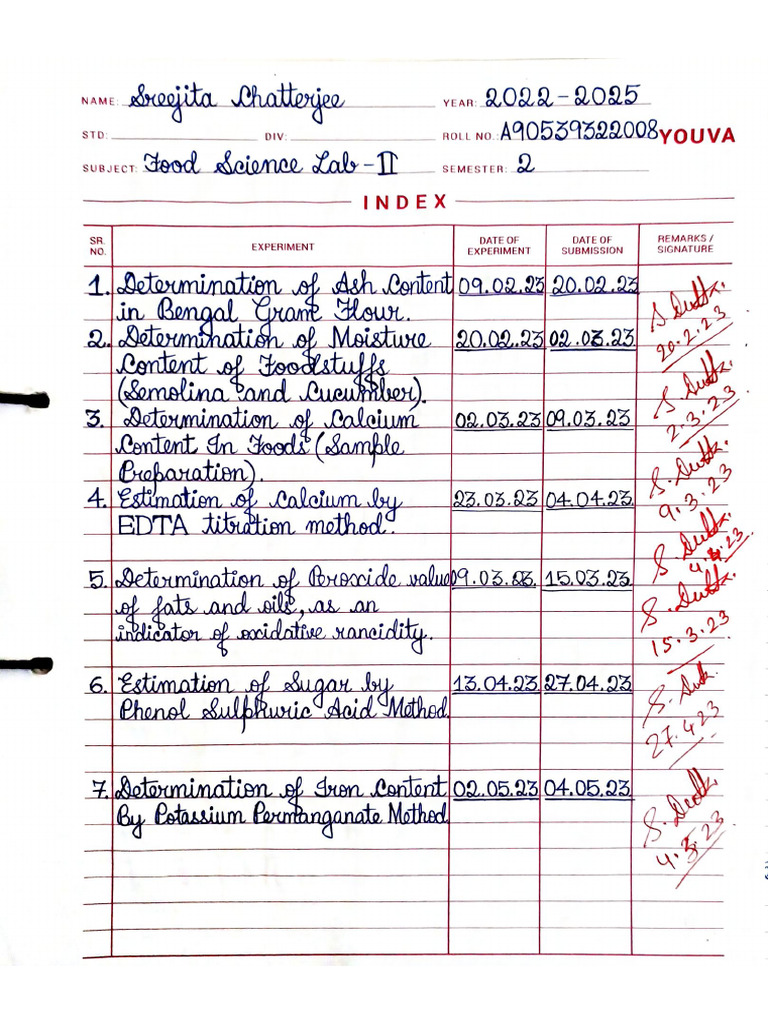 NAME: Sreejita Chatterjee YEAR: 2022-2025
STD: DIV: ROLL NO.: A90539322008 YOUVA
SUBJECT: Food Science Lab-II SEMESTER: 2
INDEX
SR. NO. EXPERIMENT DATE OF EXPERIMENT DATE OF SUBMISSION REMARKS / SIGNATURE
1. Determination of Ash Content 09.02.23 20.02.23 S. Dutta.
in Bengal Gram Flour. 20.2.23
2. Determination of Moisture 20.02.23 02.03.23
Content of Foodstuffs S. Dutta.
(Semolina and Cucumber). 2.3.23
3. Determination of Calcium 02.03.23 09.03.23
Content In Foods (Sample S. Dutta.
Preparation). 9.3.23
4. Estimation of Calcium by 23.03.23 04.04.23
EDTA titration method. S. Dutta.
5. Determination of Peroxide value 09.03.23. 15.03.23 S. Dutta.
of fats and oils, as an 15.3.23
indicator of oxidative rancidity.
6. Estimation of Sugar by 13.04.23 27.04.23 S. Dutta.
Phenol Sulphuric Acid Method. 27.4.23
7. Determination of Iron Content 02.05.23 04.05.23 S. Dutta.
By Potassium Permanganate Method.